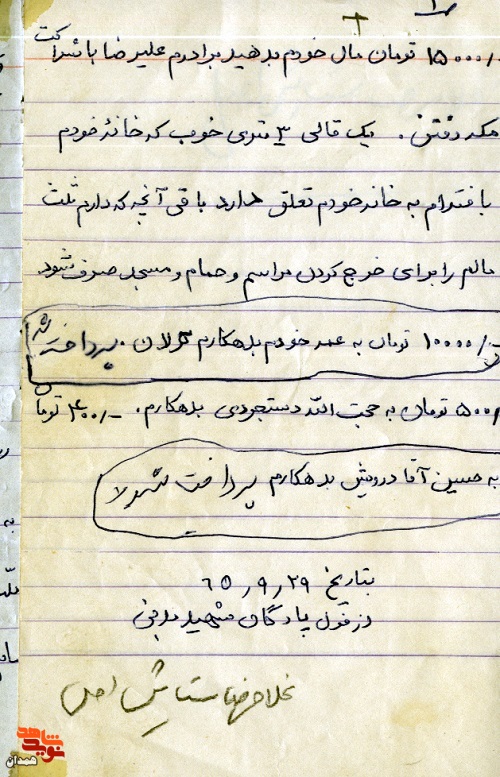 ۱۵۰۰۰/- تومان مال خودم بدهید برادرم علیرضا با شراکت
مکه رفتن. یک قالی ۳ متری خوب که خانهٔ خودم
بافته‌ام به خانه خودم تعلق دارد باقی آنچه که دارم ثلث
مالم را برای خرج کردن مراسم و حمام و مسجد صرف شود
۱۰۰۰۰/- تومان به عمه خودم بدهکارم پرداخت شد
۵۰۰/- تومان به حجت الله دستجردی بدهکارم. ۴۰۰/- تومان
به حسین آقا درویش بدهکارم پرداخت شد
بتاریخ ۶۵٫۹٫۲۹
دزفول پادگان شهید مدنی
غلامرضا ستایش اصل
نوید شاهد
همدان